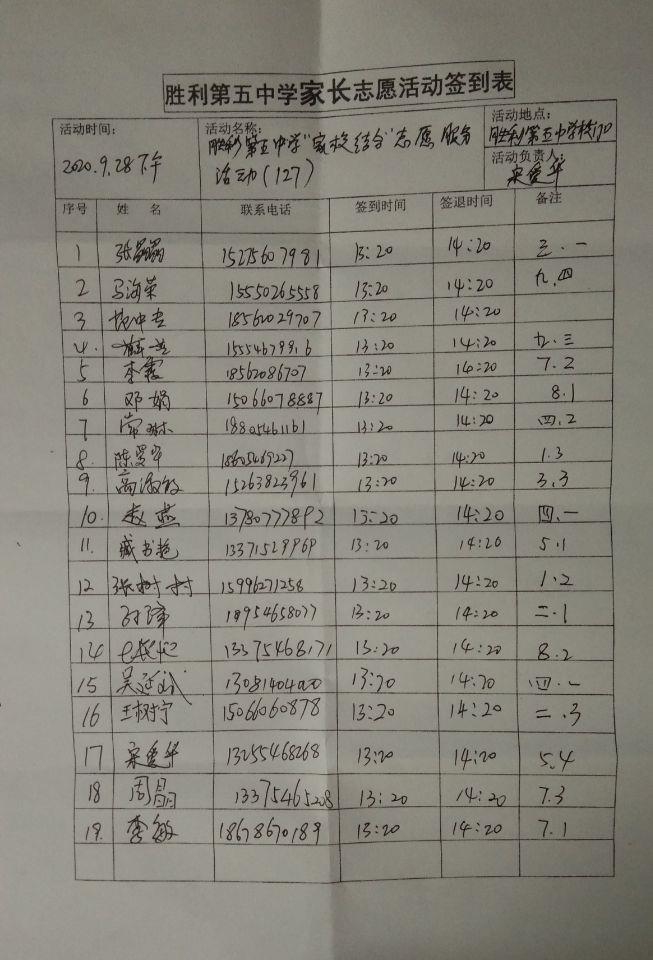 胜利第五中学家长志愿活动签到表
活动时间: 2020.9.28下午
活动名称: 胜利第五中学"家校结合"志愿服务
活动(127)
活动地点: 胜利第五中学校门口
活动负责人: 宋爱华
序号 姓 名 联系电话 签到时间 签退时间 备注
1 张晶晶 15275607981 13:20 14:20 三.一
2 马海荣 15550265558 13:20 14:20 九.四
3 18562029707 13:20 14:20
4. 13:20 14:20 九.三
5 李霞 18562086707 13:20 14:20 7.2
6 邓娟 15066078887 13:20 14:20 8.1
7 常琳 18805461161 13:20 14:20 四.2
8. 陈爱军 13:20 14:20 1.3
9. 高海敏 15263823961 13:20 14:20 3.3
10. 赵燕 13780777892 13:20 14:20 四.一
11. 臧书艳 13371529969 13:20 14:20 5.1
12 张树村 15996271258 13:20 14:20 1.2
13 13:20 14:20 二.1
14 13375468171 13:20 14:20 8.2
15 吴延武 13:20 14:20 四.一
16 王树宁 15066060878 13:20 14:20 二.3
17 宋爱华 13255468268 13:20 14:20 5.4
18 周晶 13375465208 13:20 14:20 7.3
19. 李敏 18678670189 13:20 14:20 7.1